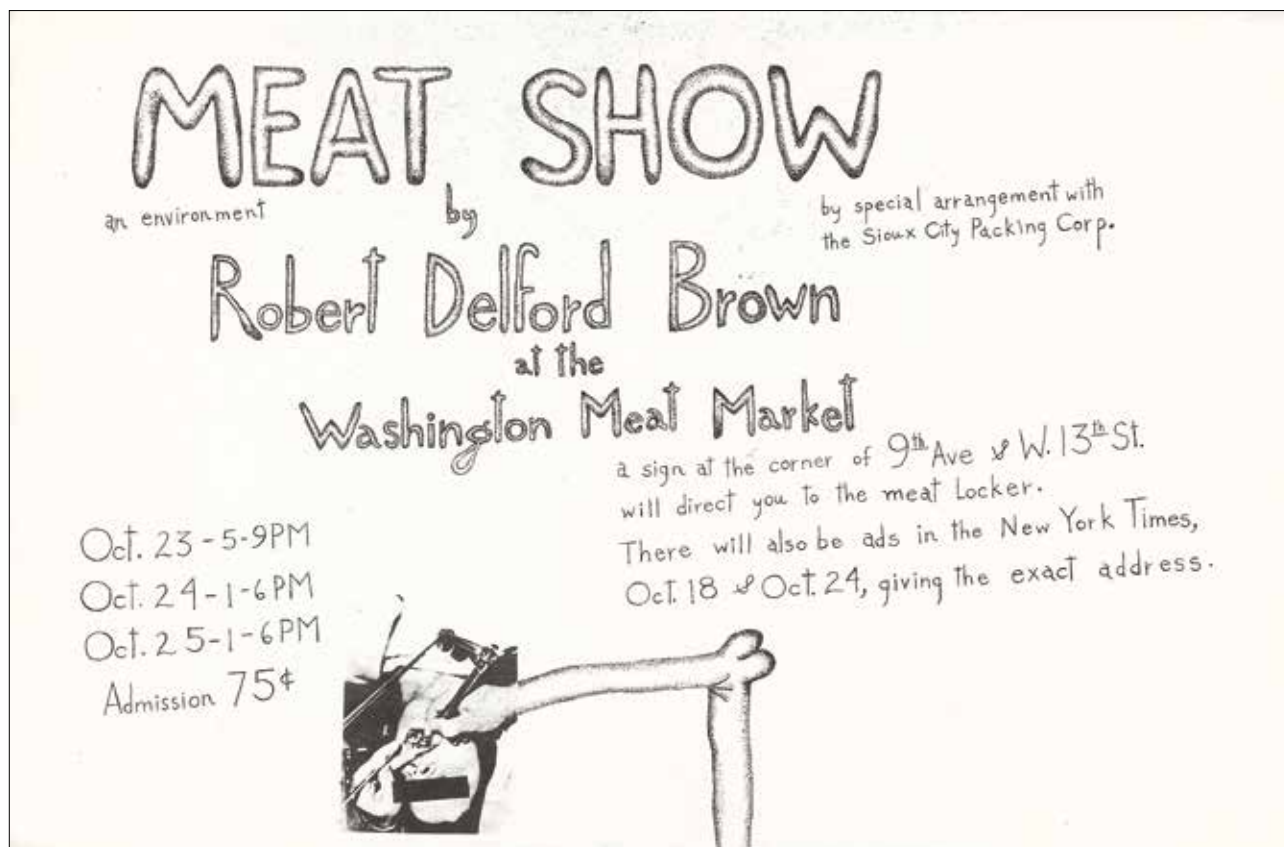 MEAT SHOW
an environment
by
by special arrangement with
the Sioux City Packing Corp.
Robert Delford Brown
at the
Washington Meat Market
a sign at the corner of 9th Ave & W. 13th St.
will direct you to the meat Locker.
There will also be ads in the New York Times,
Oct. 18 & Oct. 24, giving the exact address.
Oct. 23 - 5-9PM
Oct. 24-1-6PM
Oct. 25-1-6PM
Admission 75¢